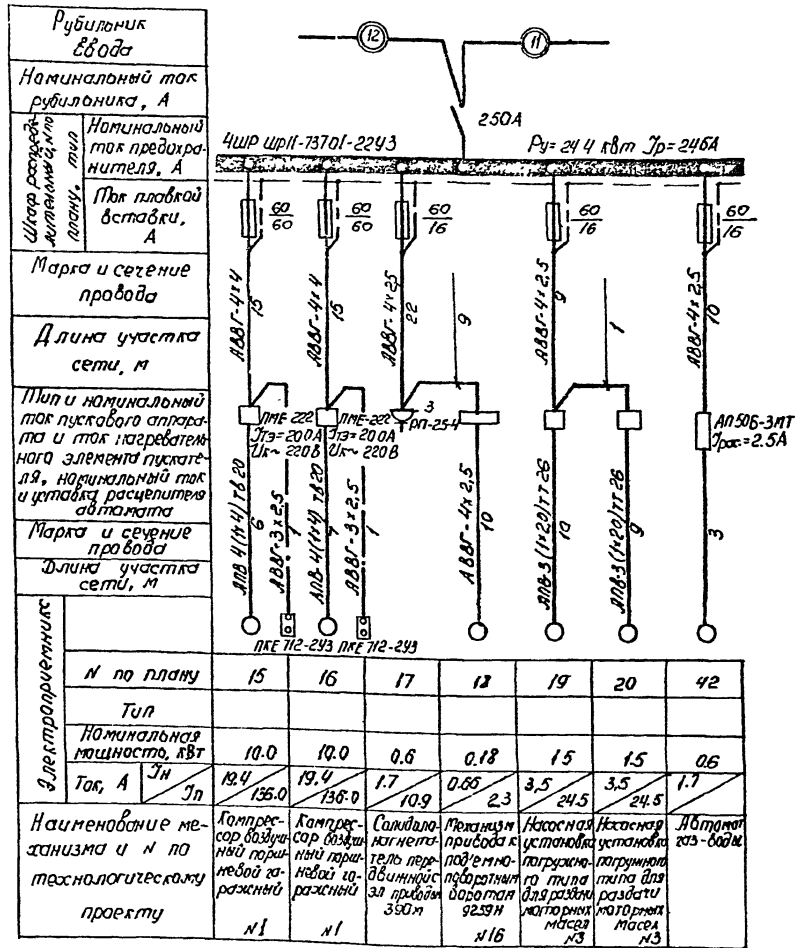 Рубильник
ввода
Номинальный ток
рубильника, А
Шкаф распреде-
лительный, N по
плану, тип
Номинальный
ток предохра-
нителя, А
Ток плавкой
вставки,
А
Марка и сечение
провода
Длина участка
сети, м
Тип и номинальный
ток пускового аппара-
та и ток нагреватель
ного элемента пускате-
ля, номинальный ток
и уставка расцепителя
автомата
Марка и сечение
провода
Длина участка
сети, м
12
11
250А
4ШР ШР11-73701-22У3
Ру=244 квт Iр=246А
60
60
60
60
60
16
60
16
60
16
АВВГ-4×4
15
АВВГ-4×4
15
АВВГ-4×2,5
22
9
АВВГ-4×2,5
9
1
АВВГ-4×2,5
10
ПМЕ-222
Iтэ=20.0А
Uк~220В
ПМЕ-222
Iтэ=20.0А
Uк~220В
3
РП-25-4
АП50Б-3МТ
Iрас.=2.5А
АПВ-4(1×4)тв20
6
АВВГ-3×2,5
1
АПВ-4(1×4)тв20
7
АВВГ-3×2,5
1
АВВГ-4×2,5
10
АПВ-3(1×20)тт26
10
АПВ-3(1×20)тт26
9
3
ПКЕ 712-2У3 ПКЕ 712-2У3
Электроприемник
N по плану 15 16 17 18 19 20 42
Тип
Номинальная
мощность, кВт 10.0 10.0 0.6 0.18 1.5 1.5 0.6
Ток, А Iн 19.4 19.4 1.7 0.66 3,5 3,5 1.7
Iп 136.0 136.0 10.9 2.3 24.5 24.5
Наименование ме-
ханизма и N по
технологическому
проекту
Компрес-
сор воздуш-
ный порш-
невой га-
ражный
N1
Компрес-
сор воздуш-
ный порш-
невой га-
ражный
N1
Солидоло-
нагнета-
тель пере-
движной с
эл приводом
390м
Механизм
привода к
подъемно-
поворотным
воротам
9259Н
N16
Насосная
установка
погружно-
го типа
для раздачи
моторных
масел
N3
Насосная
установка
погружного
типа для
раздачи
моторных
масел
N3
Автомат
газ-воды